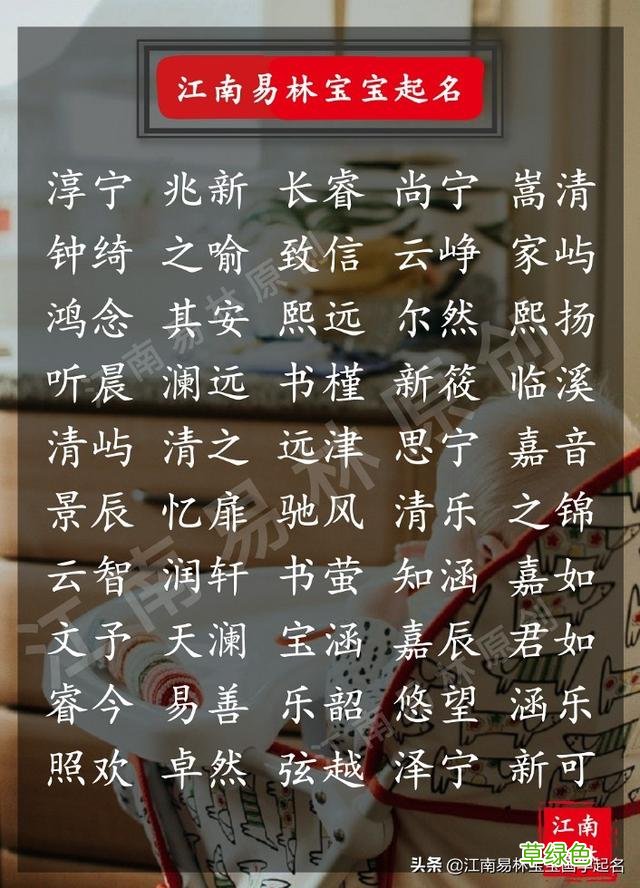 江南易林宝宝起名
淳宁 兆新 长睿 尚宁 嵩清
钟绮 之喻 致信 云峥 家屿
鸿念 其安 熙远 尔然 熙扬
听晨 澜远 书槿 新筱 临溪
清屿 清之 远津 思宁 嘉音
景辰 忆扉 驰风 清乐 之锦
云智 润轩 书萤 知涵 嘉如
文予 天澜 宝涵 嘉辰 君如
睿今 易善 乐韶 悠望 涵乐
照欢 卓然 弦越 泽宁 新可
江南易林原创
江南易林原创
江南
草绿色
头条 @江南易林宝宝国学起名